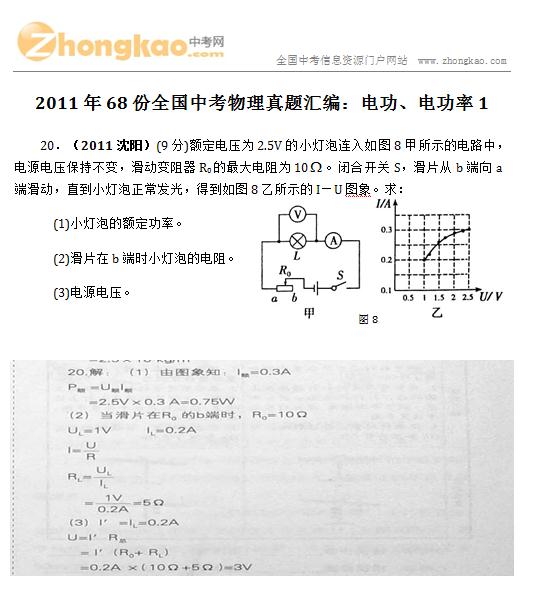 Zhongkao.com 中考网
全国中考信息资源门户网站 www.zhongkao.com
2011年68份全国中考物理真题汇编：电功、电功率1
20．（2011沈阳）(9分)额定电压为2.5V的小灯泡连入如图8甲所示的电路中，
电源电压保持不变，滑动变阻器R₀的最大电阻为10Ω。闭合开关S，滑片从b端向a
端滑动，直到小灯泡正常发光，得到如图8乙所示的I－U图象。求：
(1)小灯泡的额定功率。
(2)滑片在b端时小灯泡的电阻。
(3)电源电压。
V
L
A
R₀
S
a b
甲
I/A
0.3
0.2
0.1
0.5 1 1.5 2 2.5 U/V
乙
图8
20.解：（1）由图象知：I额=0.3A
P额=U额I额
=2.5V×0.3A=0.75W
（2）当滑片在R₀的b端时，R₀=10Ω
UL=1V IL=0.2A
I=U/R
RL=UL/IL
=1V/0.2A=5Ω
（3）I′=IL=0.2A
U=I′R总
=I′(R₀+RL)
=0.2A×(10Ω+5Ω)=3V